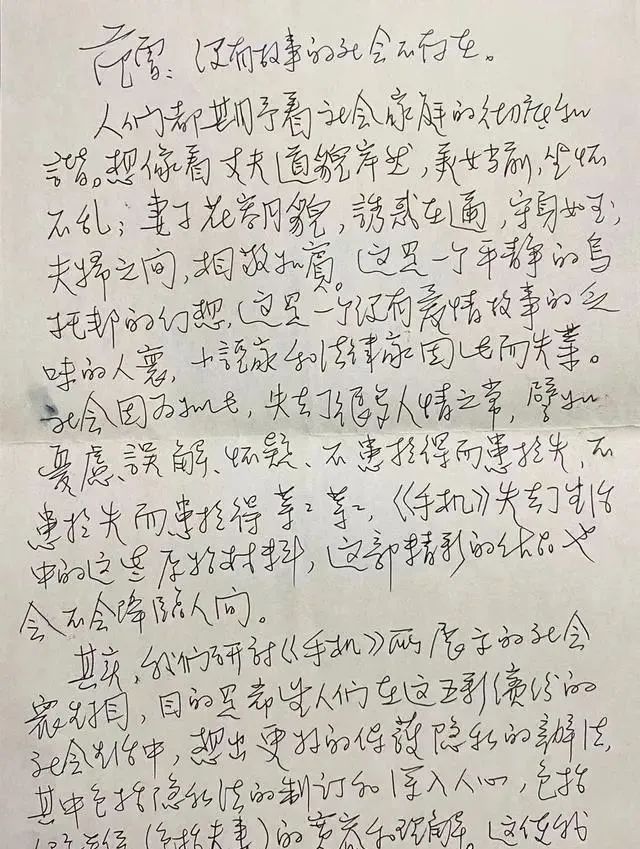 范雪：没有故事的社会不存在。
人们都期予着社会家庭的彻底和
諧。想像着丈夫道貌岸然，美女当前，坐怀
不乱；妻子花容月貌，誘惑在逼，守身如玉，
夫婦之间，相敬如賓。这是一个平静的烏
托邦的幻想，这是一个没有爱情故事的乏
味的人寰，小説家和法律家因此而失業。
社会因为如此，失去了很多人情之常，譬如
憂慮、誤解、怀疑、不患於得而患於失，不
患於失而患於得等等，《手机》失去了生活
中的这些原始材料，这部精彩的作品也
会不会降臨人间。
其实，我们研讨《手机》所展示的社会
衆相，目的是希望人们在这五彩缤纷的
社会生活中，想出更好的保護隐私的辦法，
其中包括隐私法的制订和深入人心，包括
(包括夫妻)的寬容和理解。这使我